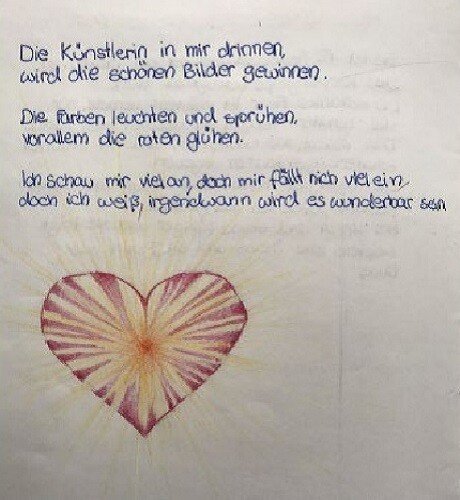 Die Künstlerin in mir drinnen,
wird die schönen Bilder gewinnen.
Die Farben leuchten und sprühen,
vorallem die roten glühen.
Ich schau mir viel an, doch mir fällt nich viel ein,
doch ich weiß, irgendwann wird es wunderbar sein